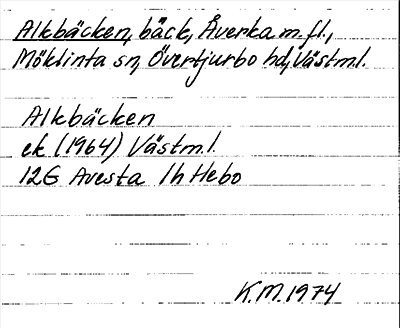 Alkbäcken, bäck, Åverka m. fl.,
Möklinta sn, Övertjurbo hd, Västml.
Alkbäcken
ek (1964) Västml.
12G Avesta 1h Hebo
K.M. 1974